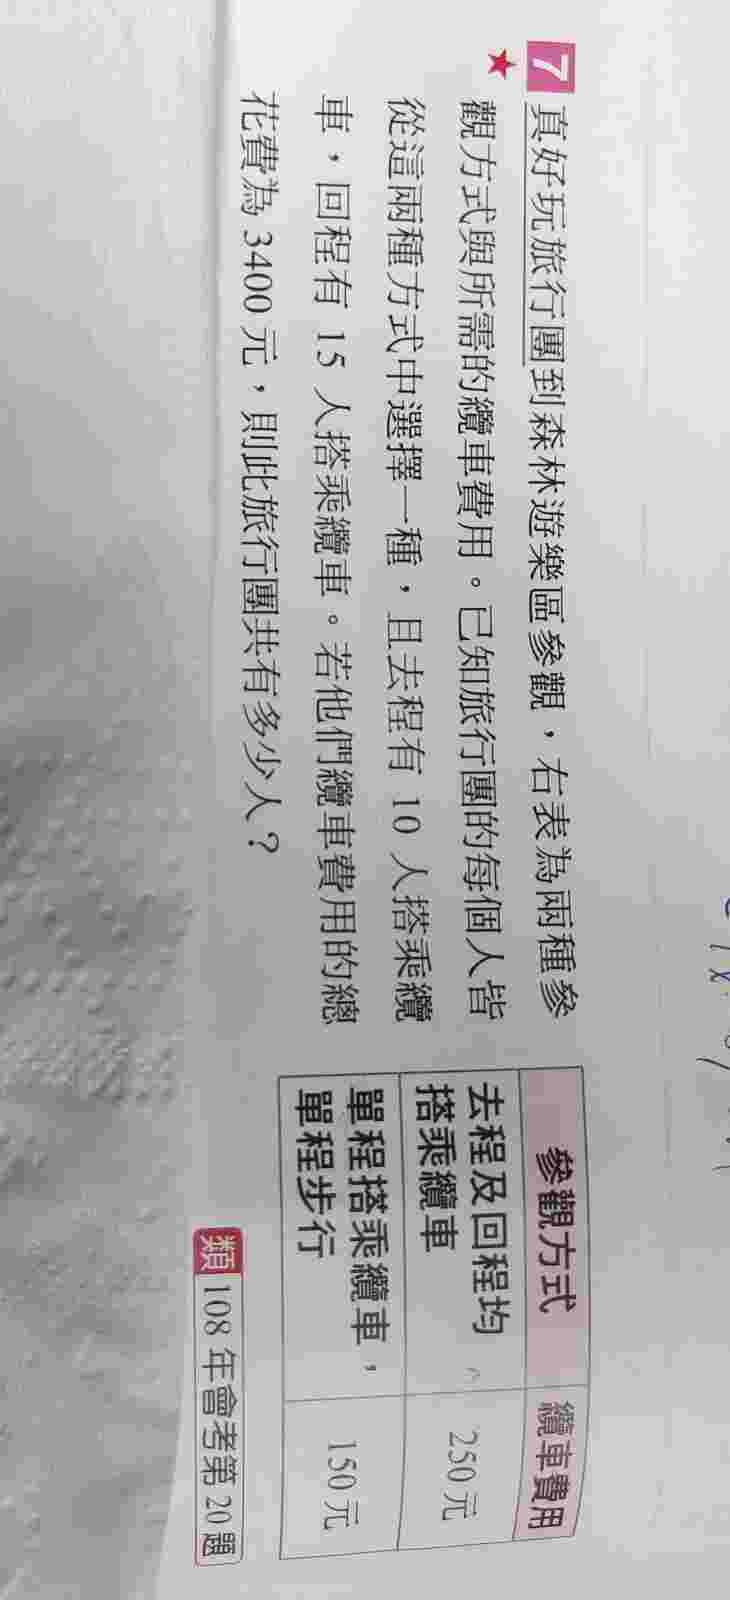 7 真好玩旅行團到森林遊樂區參觀，右表為兩種參
★ 觀方式與所需的纜車費用。已知旅行團的每個人皆
從這兩種方式中選擇一種，且去程有 10 人搭乘纜
車，回程有 15 人搭乘纜車。若他們纜車費用的總
花費為 3400 元，則此旅行團共有多少人？
參觀方式 纜車費用
去程及回程均
搭乘纜車
250 元
單程搭乘纜車，
單程步行
150 元
類 108 年會考第 20 題